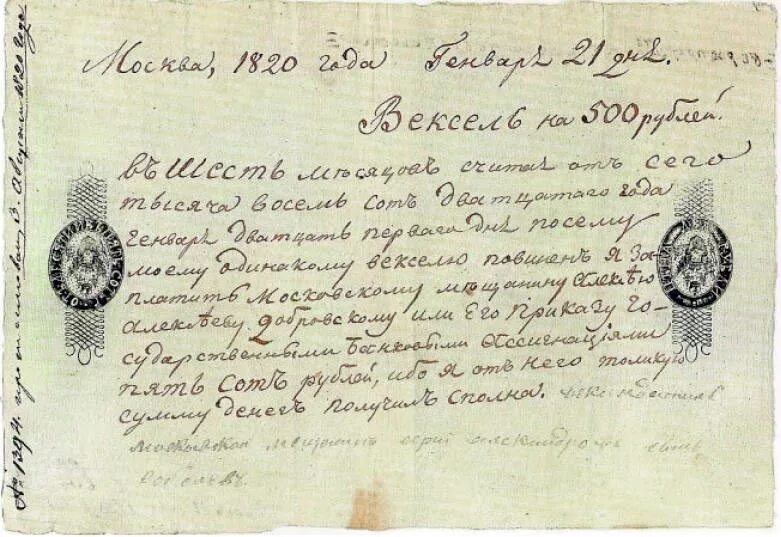 Москва, 1820 года Генварѣ 21 днѣ.
Вексель на 500 рублей.
въ шесть мѣсяцовъ считаѣ отъ сего
тысяча восемь сотъ дватцатаго года
Генварѣ дватцать перваго днѣ посему
моему одинакому векселю повиненъ я за-
платить Московскому мѣщанину Алексѣю
Алексѣеву Добровскому или Его приказу го-
сударственными банковыми Ассигнаціями
пять сотъ рублей, ибо я отъ него толикую
сумму денегъ получилъ сполна.
московской мещанинъ
№ 1394. 1820 года